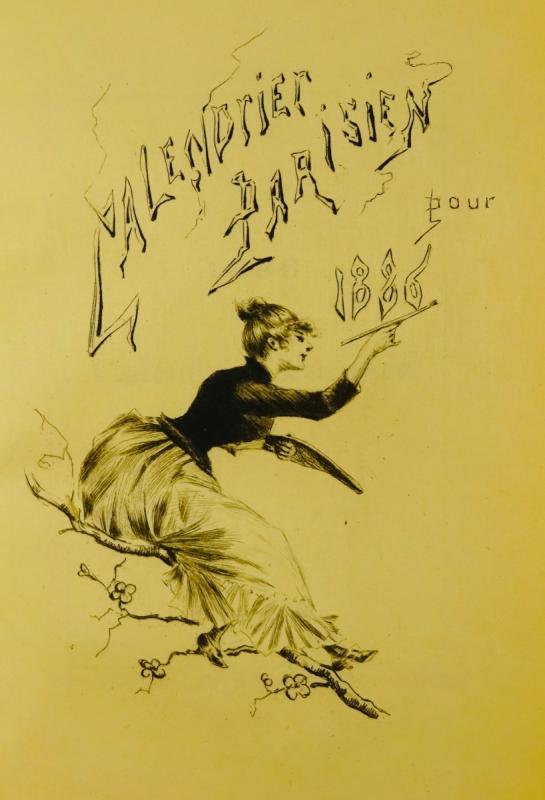 CALENDRIER
PARISIEN
pour
1886